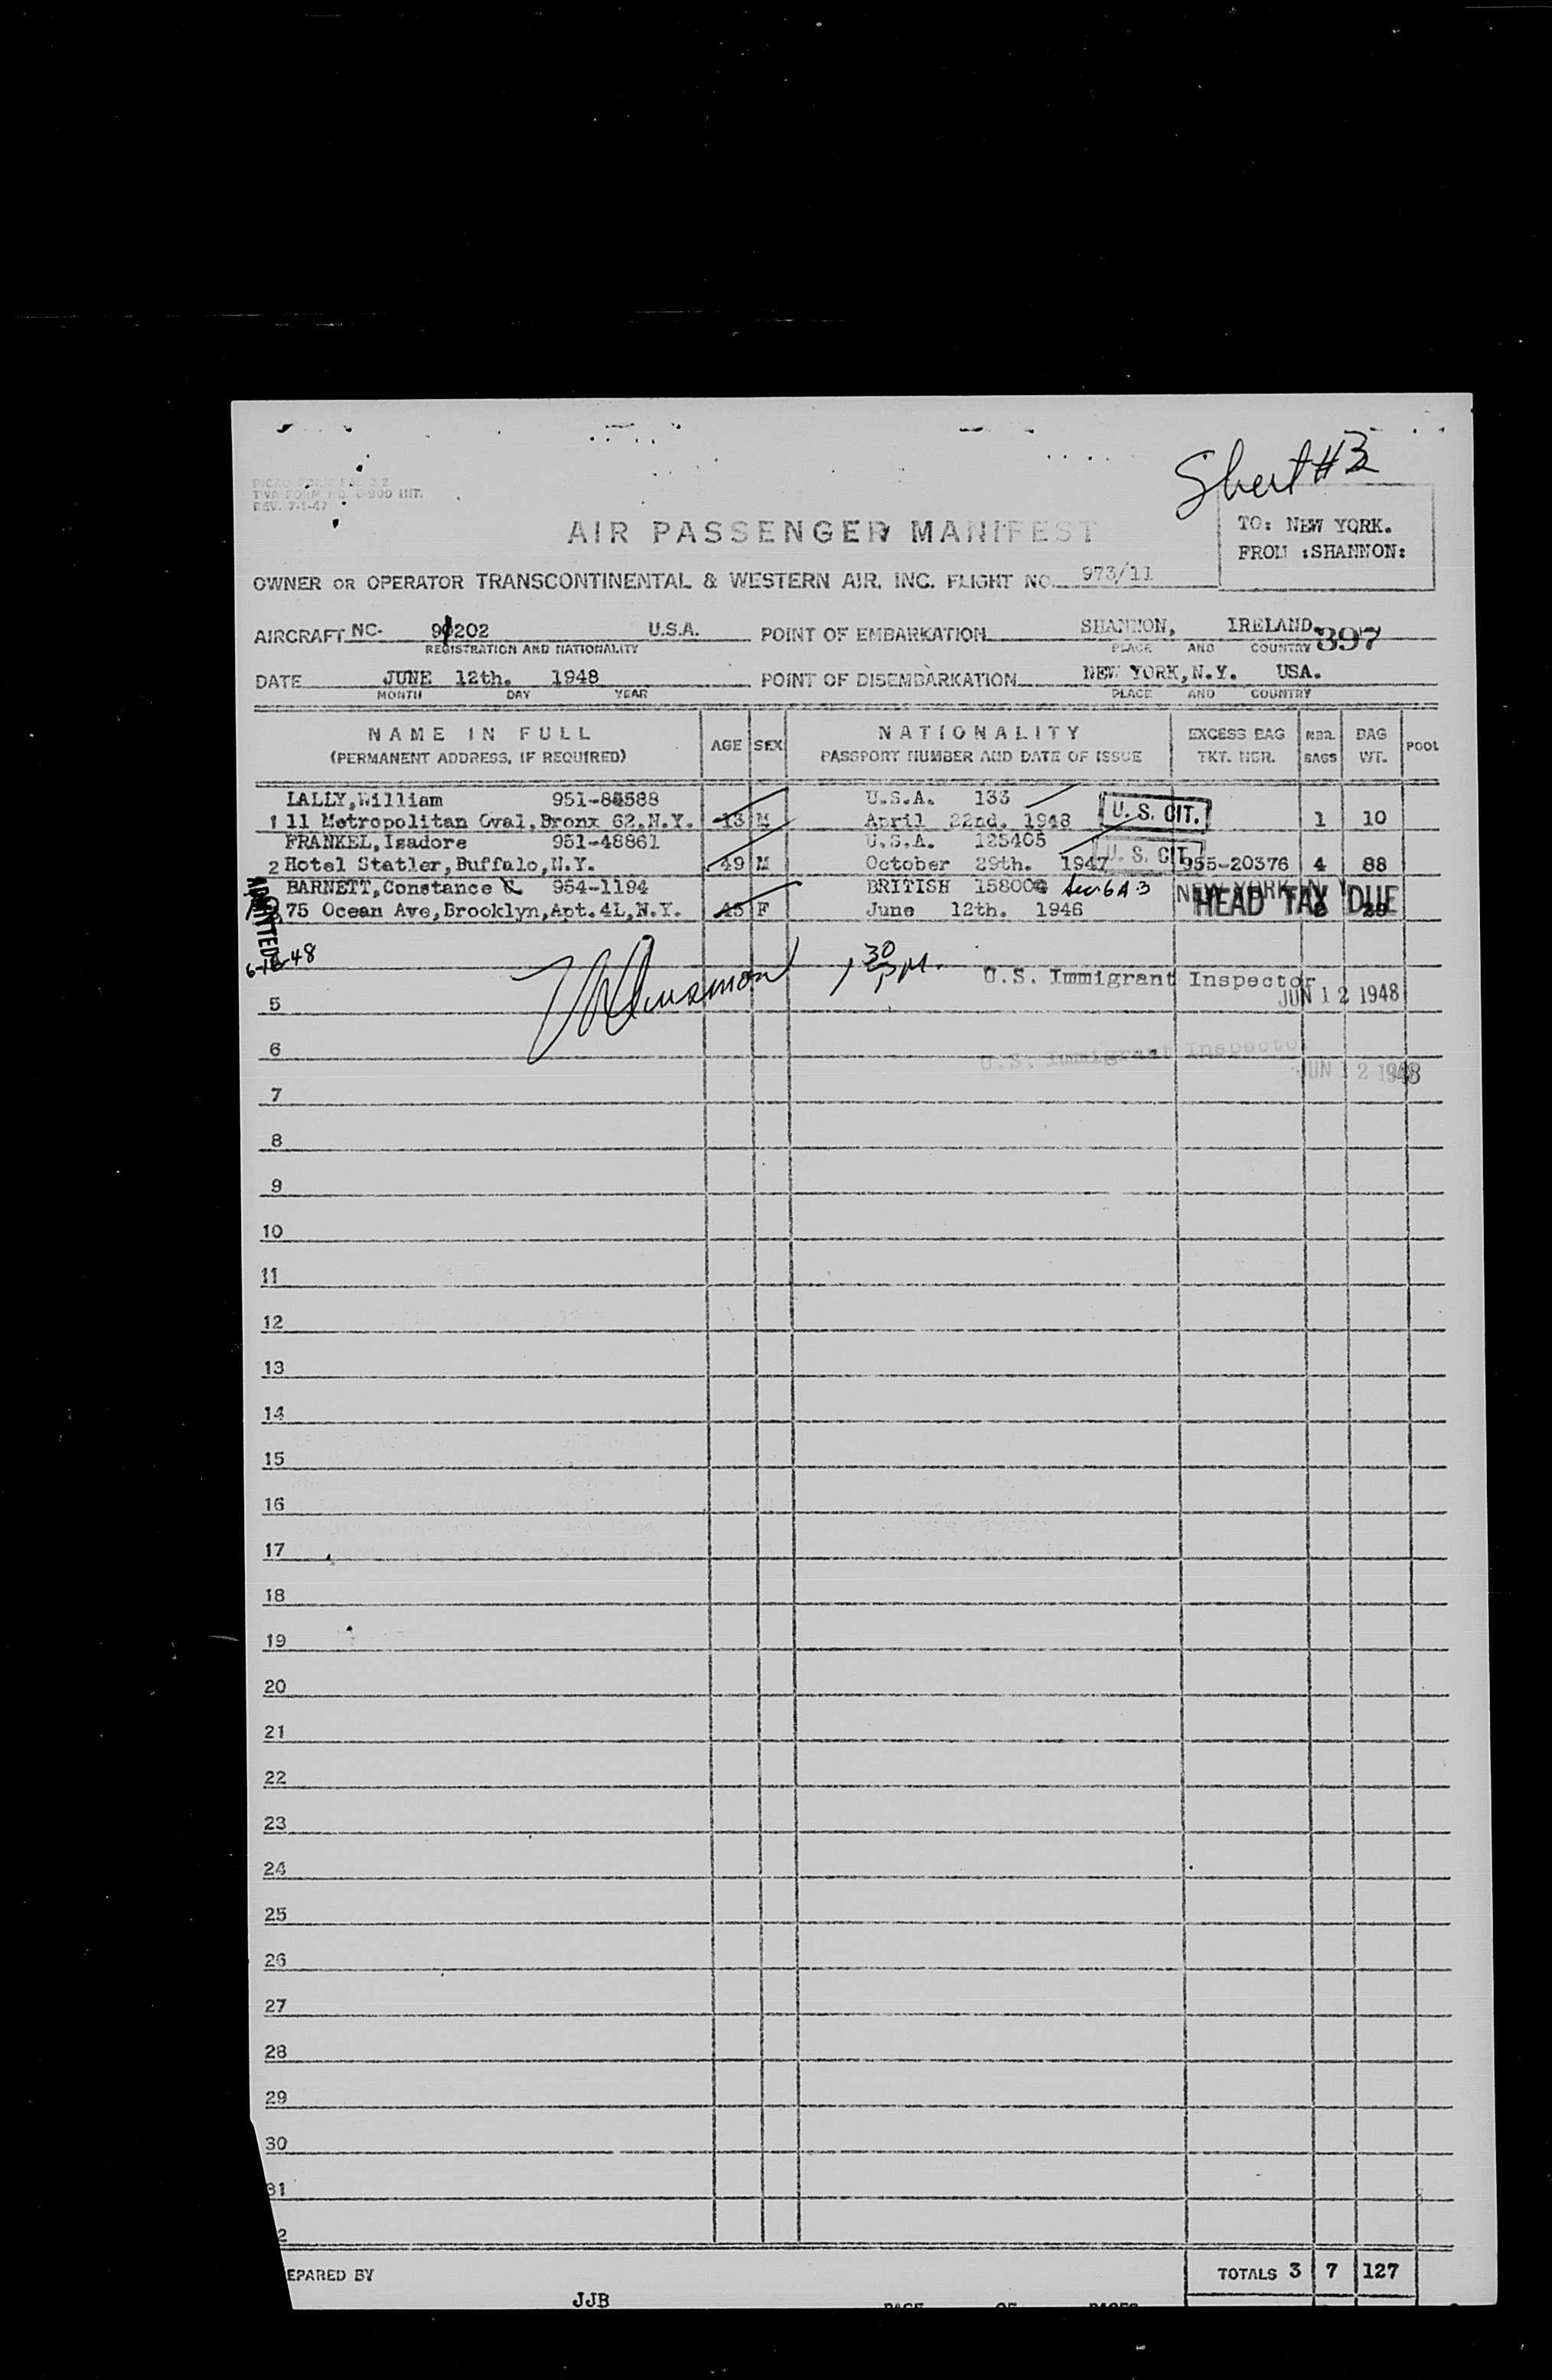 Sheet #3
TWA FORM NO. O-900 INT.
REV. 7-1-47
TO: NEW YORK.
FROM :SHANNON:
AIR PASSENGER MANIFEST
OWNER OR OPERATOR TRANSCONTINENTAL & WESTERN AIR, INC. FLIGHT NO. 973/11
AIRCRAFT NC- 90202 U.S.A. POINT OF EMBARKATION SHANNON, IRELAND. 397
REGISTRATION AND NATIONALITY PLACE AND COUNTRY
DATE JUNE 12th. 1948 POINT OF DISEMBARKATION NEW YORK,N.Y. USA.
MONTH DAY YEAR PLACE AND COUNTRY
NAME IN FULL AGE SEX NATIONALITY EXCESS BAG NBR. BAG POOL
(PERMANENT ADDRESS, IF REQUIRED) PASSPORT NUMBER AND DATE OF ISSUE TKT. NBR. BAGS WT.
LALLY,William 951-84588 U.S.A. 133
1 11 Metropolitan Oval,Bronx 62,N.Y. 13 M April 22nd. 1948 U.S. CIT. 1 10
FRANKEL,Isadore 951-48861 U.S.A. 125405
2 Hotel Statler,Buffalo,N.Y. 49 M October 29th. 1947 U.S. CIT. 955-20376 4 88
BARNETT,Constance 954-1194 BRITISH 15800 Sec 6A3 NEW YORK, N.Y.
75 Ocean Ave,Brooklyn,Apt.4L,N.Y. 45 F June 12th. 1946 HEAD TAX DUE 2 29
ADMITTED
6-12-48
1 30 P.M. U.S. Immigrant Inspector
JUN 12 1948
5
U.S. Immigrant Inspector
6
JUN 12 1948
7
8
9
10
11
12
13
14
15
16
17
18
19
20
21
22
23
24
25
26
27
28
29
30
31
2
EPARED BY TOTALS 3 7 127
JJB
PAGE OF PAGES